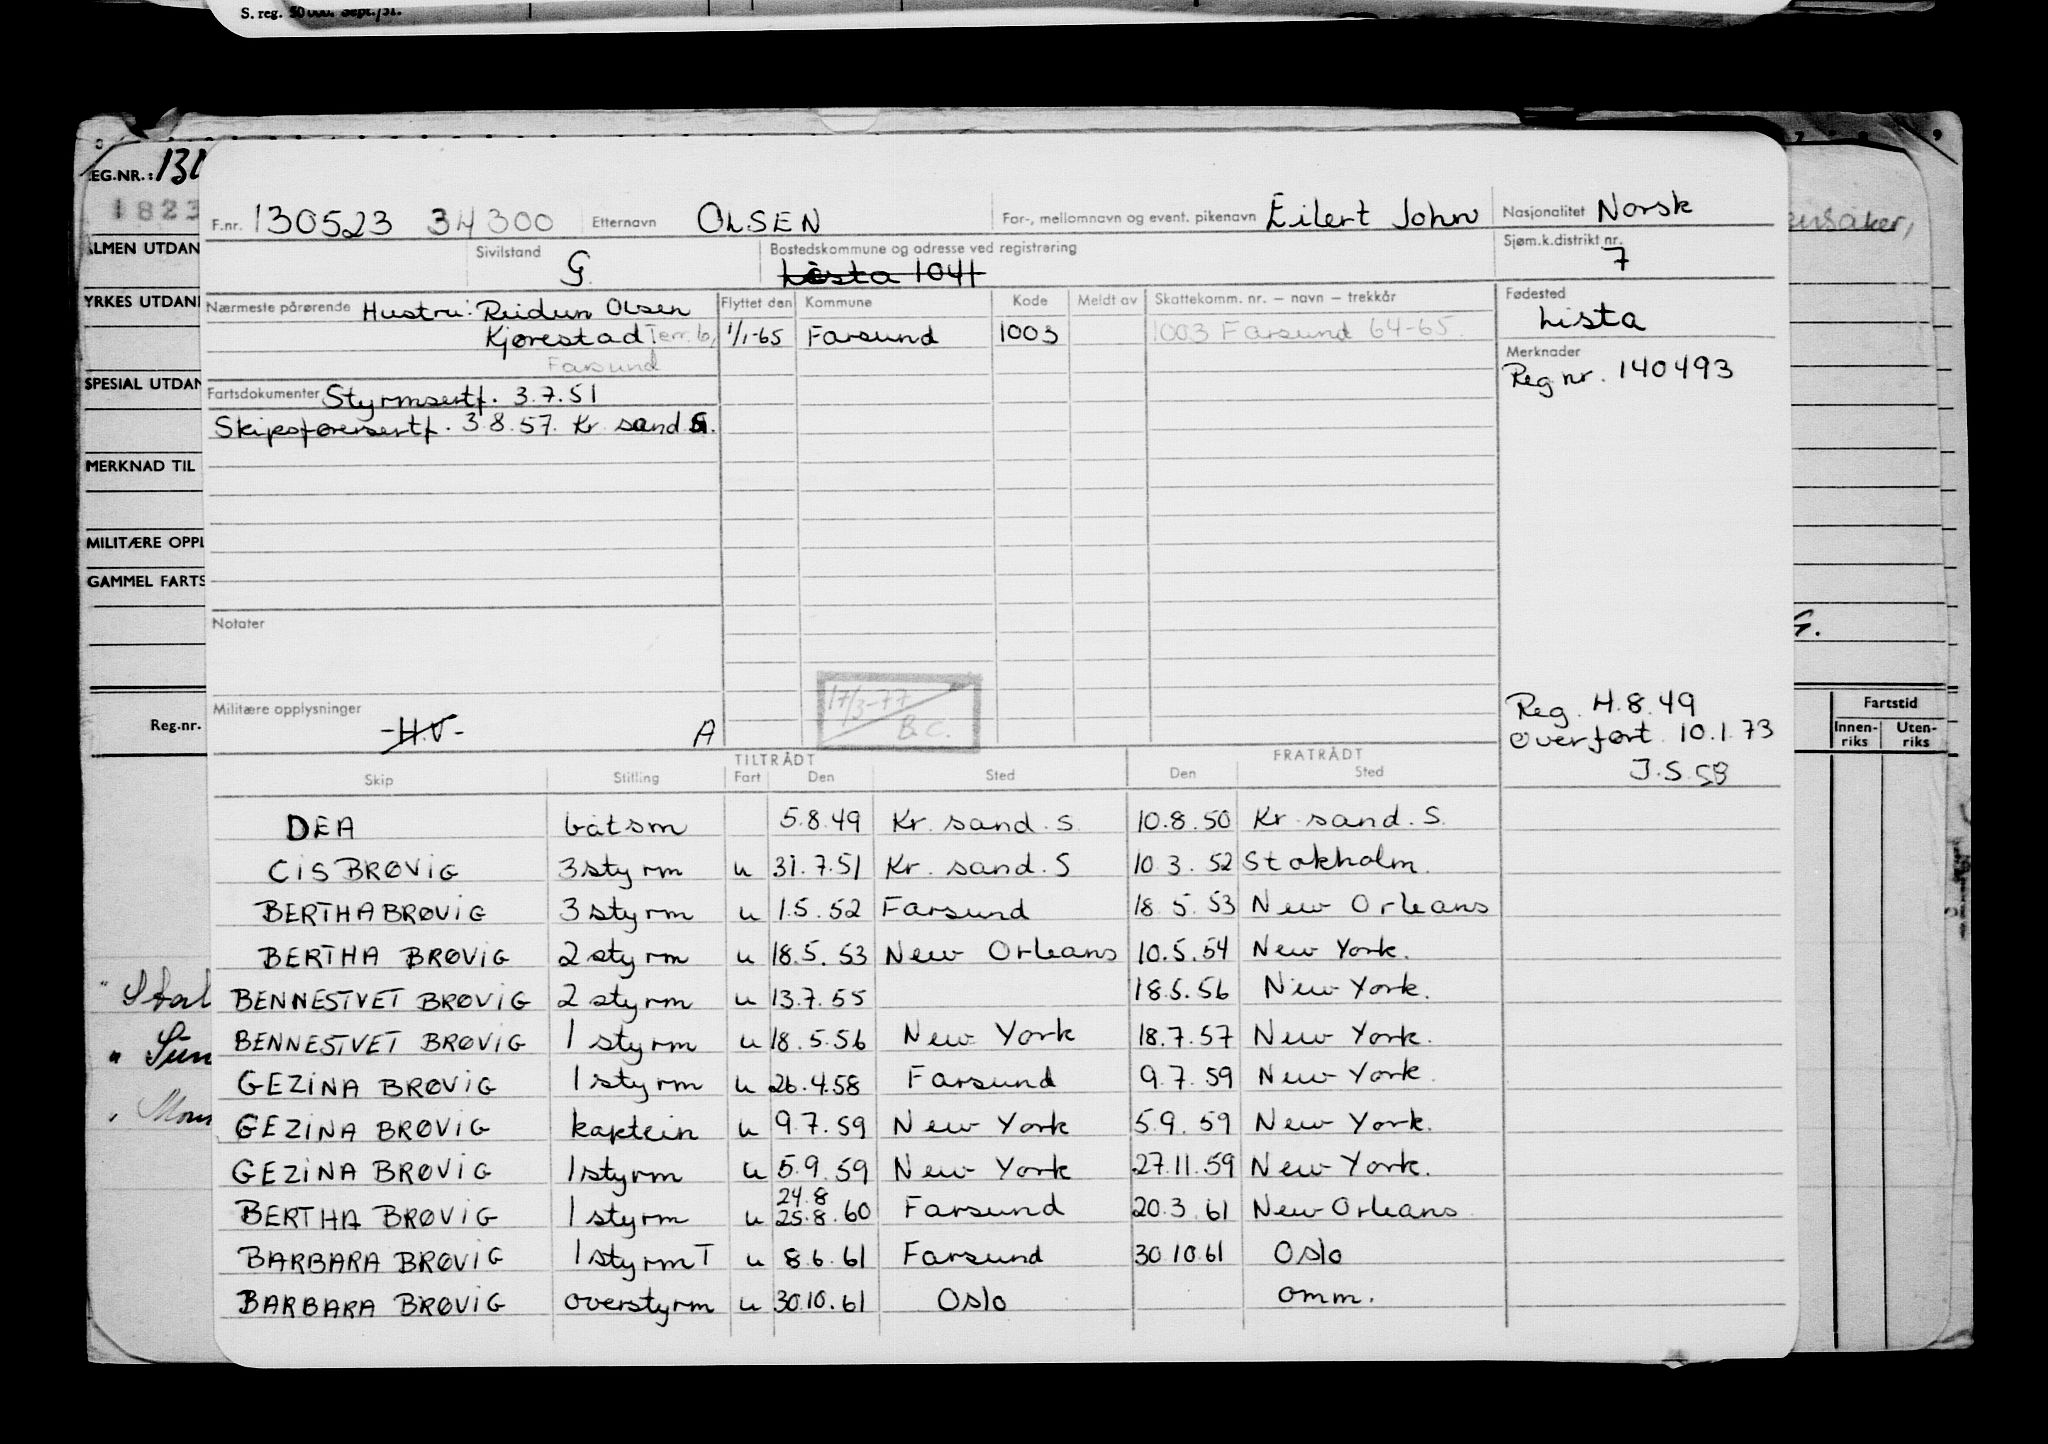 S. reg. 50 000. Sept./51.
EG.NR.:
1823
ALMEN UTDAN
YRKES UTDANI
SPESIAL UTDAN
MERKNAD TIL
MILITÆRE OPPL
GAMMEL FARTS
Reg.nr.
F.nr. 130523 34300 Etternavn OLSEN For-, mellomnavn og event. pikenavn Eilert John Nasjonalitet Norsk
Sivilstand G. Bostedskommune og adresse ved registrering Lista 1041 Sjøm.k.distrikt nr. 7
Nærmeste pårørende Hustru: Reidun Olsen Flyttet den Kommune Kode Meldt av Skattekomm. nr. – navn – trekkår Fødested
Kjørestad Terr. 6, 1/1-65 Farsund 1003 1003 Farsund 64-65. Lista
Farsund Merknader
Reg nr. 140493
Fartsdokumenter Styrmsertf. 3.7.51
Skipsførersertf. 3.8.57. Kr. sand S.
Notater
G.
Militære opplysninger -H.V- A
17/3-77
B.C.
Reg. H.8.49
Overført 10.1.73
J.S.
Fartstid
Innen-riks Uten-riks
TILTRÅDT FRATRÅDT
Skip Stilling Fart Den Sted Den Sted
DEA båtsm 5.8.49 Kr. sand. S. 10.8.50 Kr. sand. S.
CIS BRØVIG 3 styrm u 31.7.51 Kr. sand. S 10.3.52 Stokholm.
BERTHA BRØVIG 3 styrm u 1.5.52 Farsund 18.5.53 New Orleans
BERTHA BRØVIG 2 styrm u 18.5.53 New Orleans 10.5.54 New York.
BENNESTVET BRØVIG 2 styrm u 13.7.55 18.5.56 New York.
BENNESTVET BRØVIG 1 styrm u 18.5.56 New York 18.7.57 New York.
GEZINA BRØVIG 1 styrm u 26.4.58 Farsund 9.7.59 New York.
GEZINA BRØVIG kaptein u 9.7.59 New York 5.9.59 New York.
GEZINA BRØVIG 1 styrm u 5.9.59 New York 27.11.59 New York.
24.8
BERTHA BRØVIG 1 styrm u 25.8.60 Farsund 20.3.61 New Orleans
BARBARA BRØVIG 1 styrm T u 8.6.61 Farsund 30.10.61 Oslo
BARBARA BRØVIG overstyrm u 30.10.61 Oslo omm.